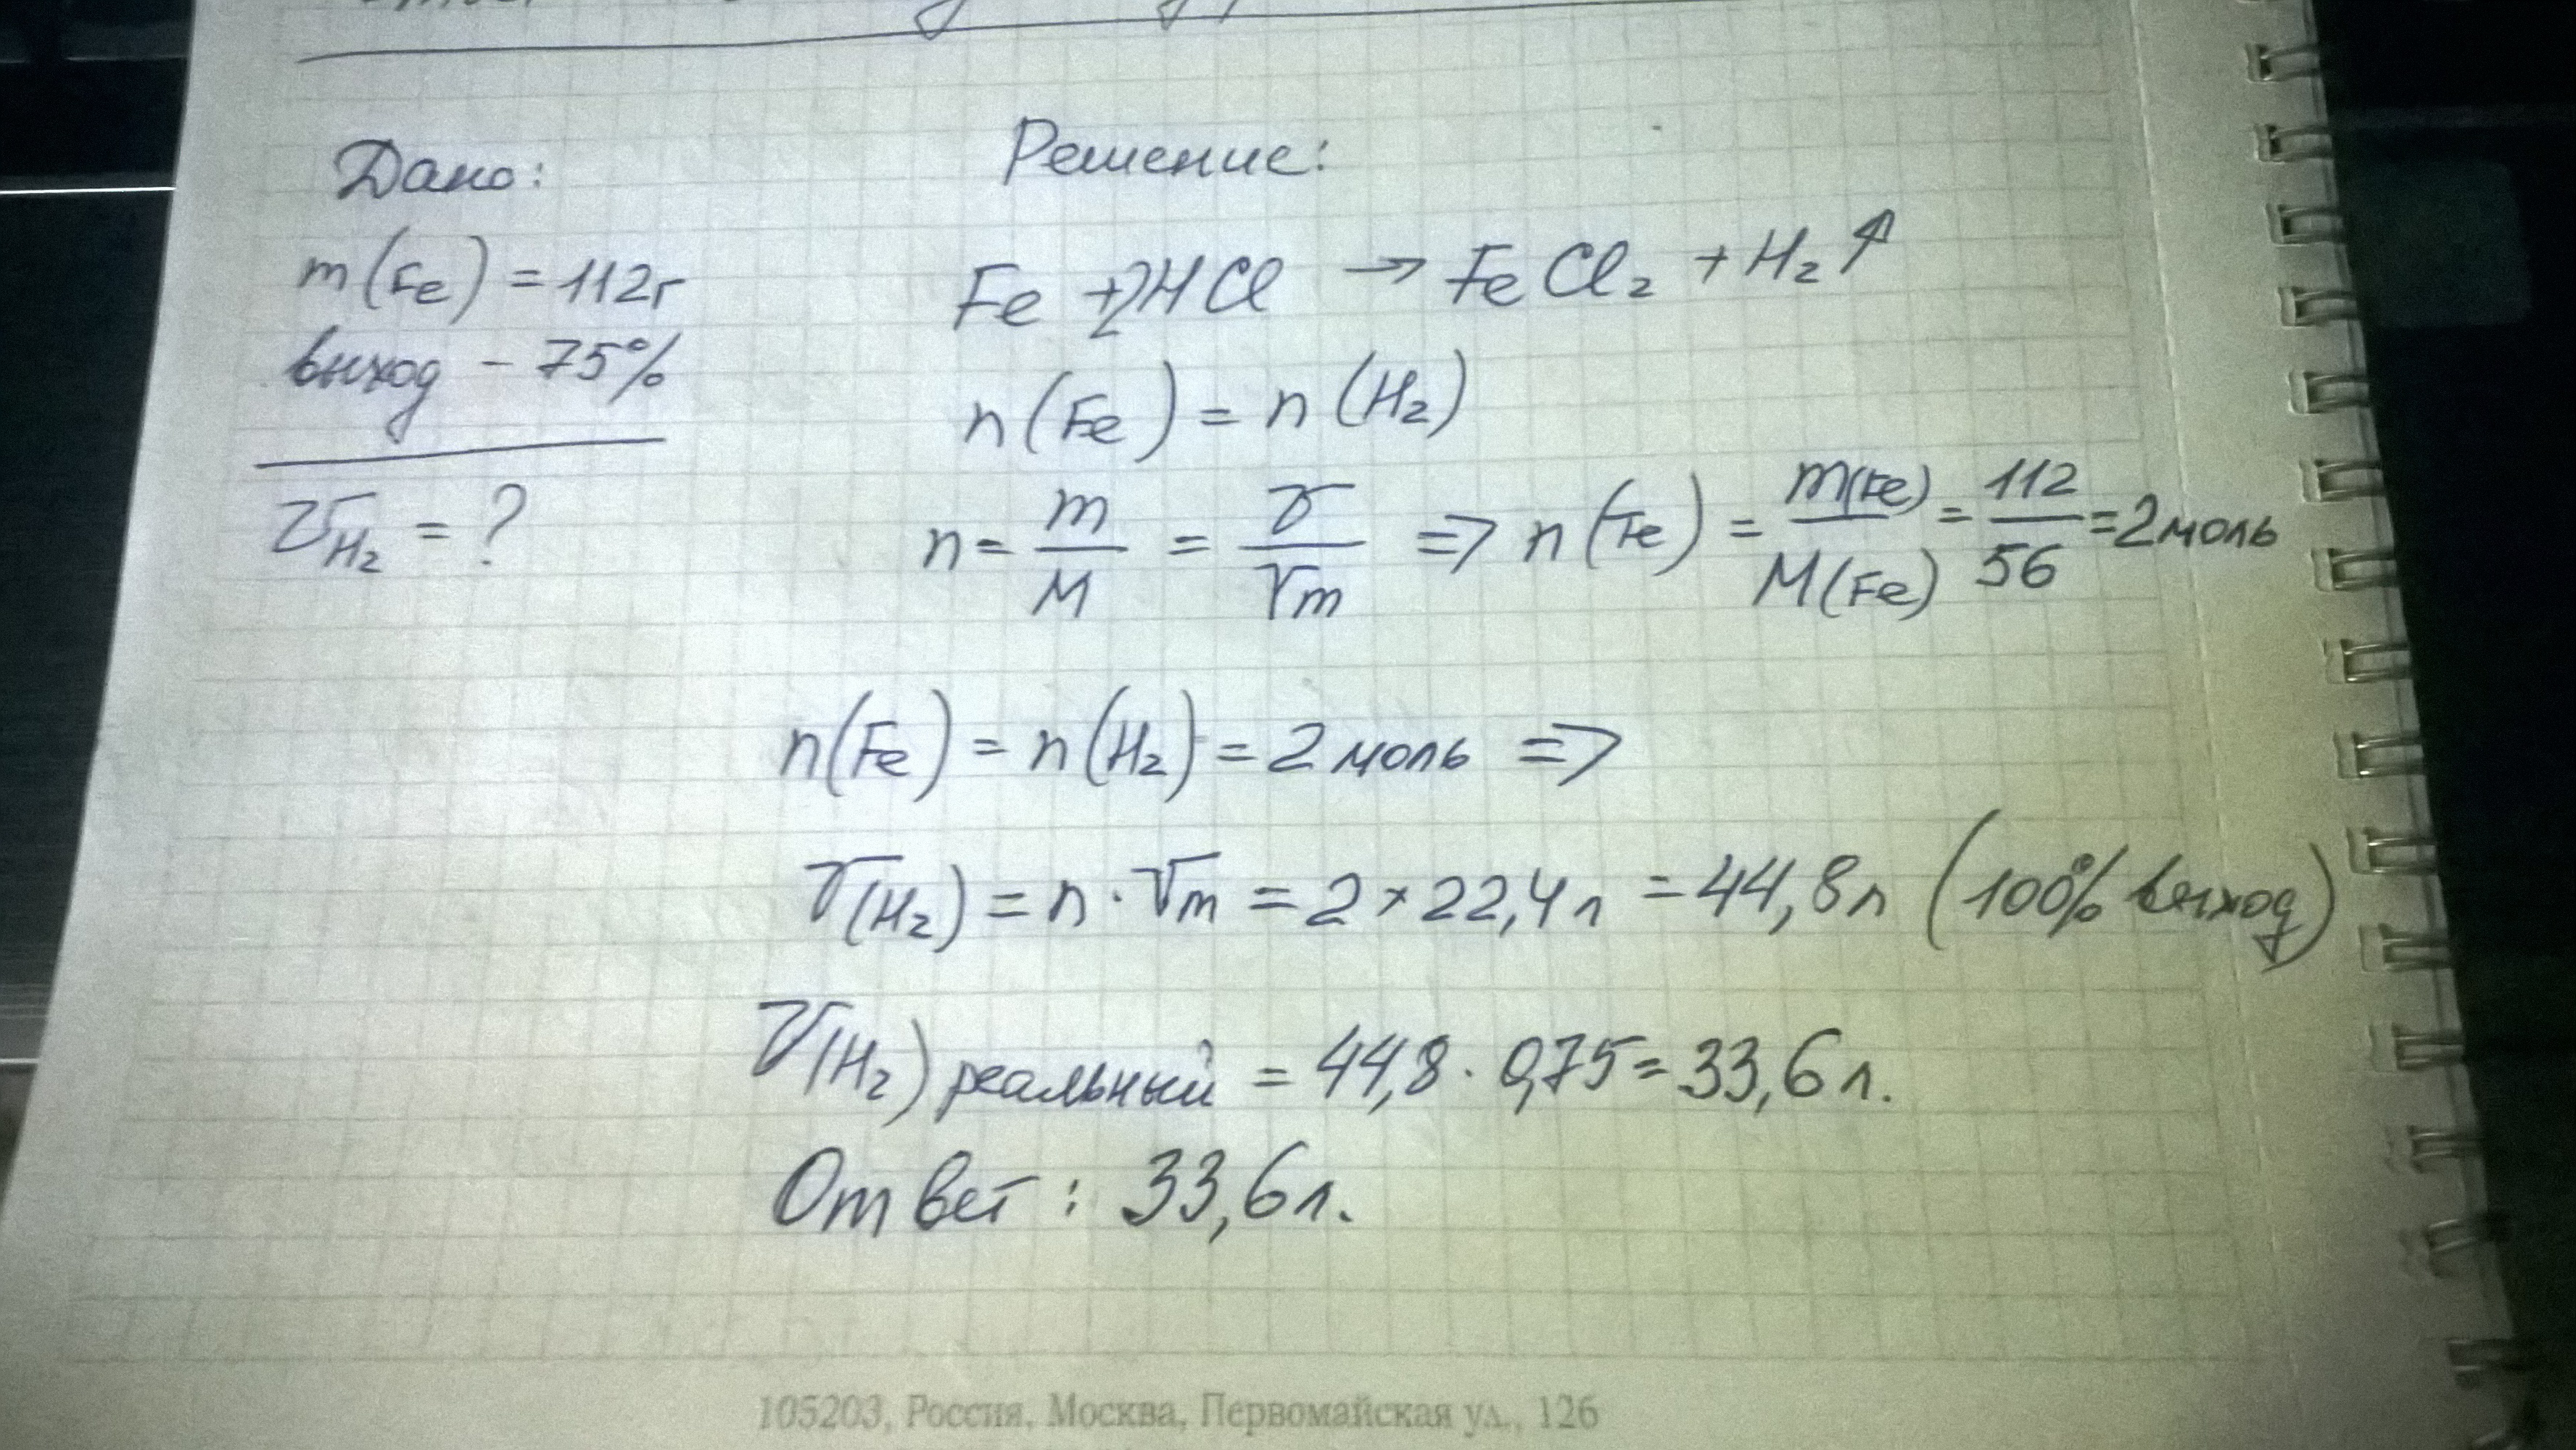 Дано:
m(Fe) = 112г
выход - 75%
V H₂ = ?
Решение:
Fe + 2HCl → FeCl₂ + H₂↑
n(Fe) = n(H₂)
n = m/M = V/Vm => n(Fe) = m(Fe)/M(Fe) = 112/56 = 2моль
n(Fe) = n(H₂) = 2 моль =>
V(H₂) = n · Vm = 2 × 22,4л = 44,8л (100% выход)
V(H₂) реальный = 44,8 · 0,75 = 33,6л.
Ответ: 33,6л.
105203, Россия, Москва, Первомайская ул., 126